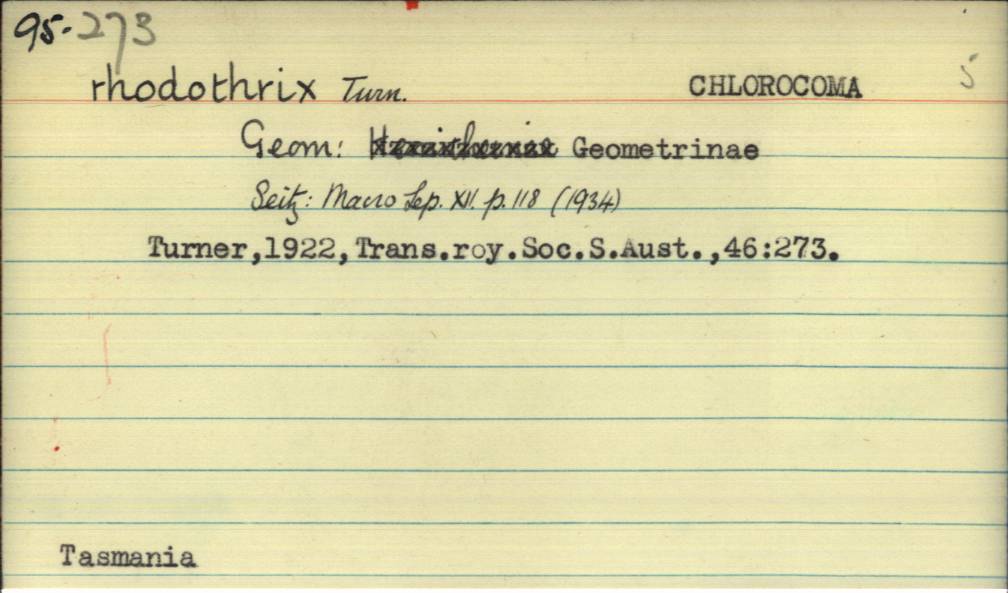 95-273
rhodothrix Turn. CHLOROCOMA 5
Geom: Geometrinae
Seitz: Macro Lep. XII. p. 118 (1934)
Turner,1922,Trans.roy.Soc.S.Aust.,46:273.
Tasmania